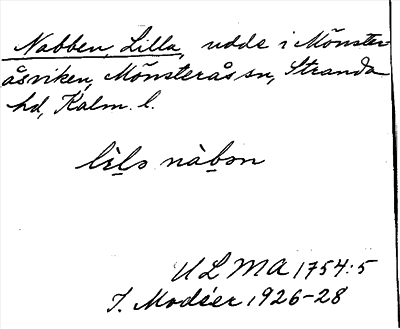 Nabben, Lilla, udde i Mönster-
åsviken, Mönsterås sn, Stranda
hd, Kalm. l.
lìls nàbən
ULMA 1754:5
I. Modéer 1926-28